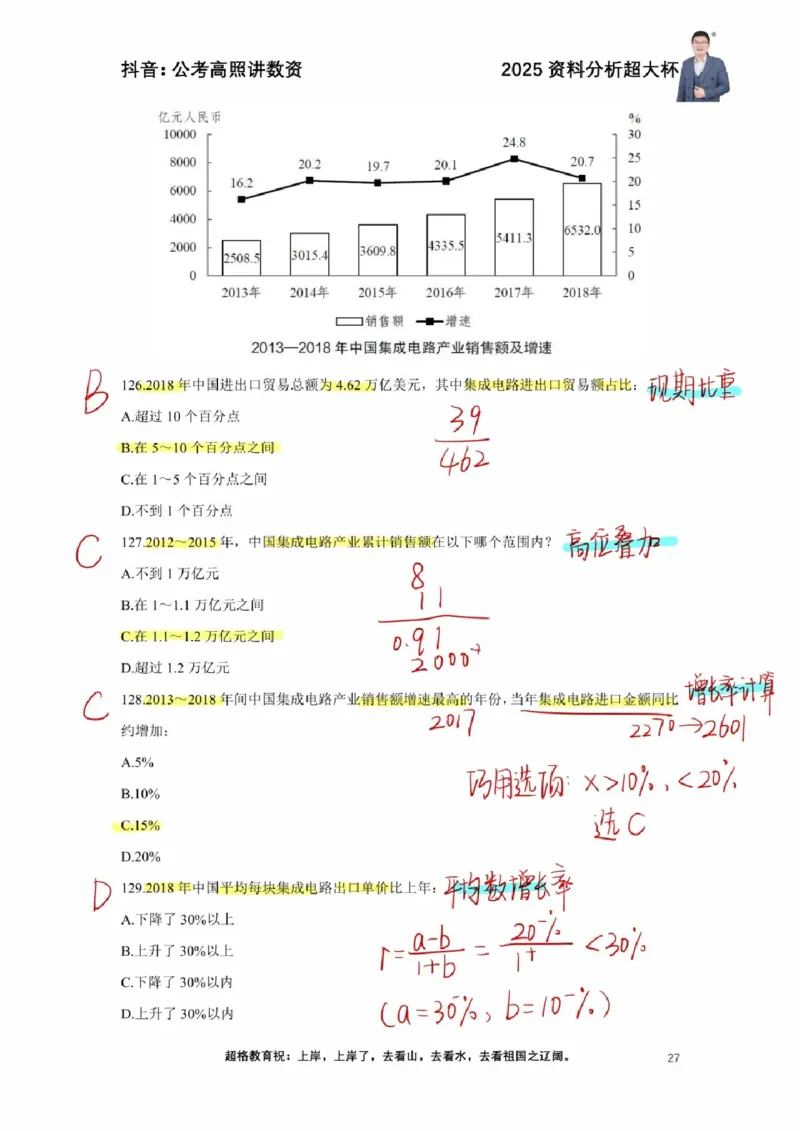 抖音：公考高照讲数资 2025 资料分析超大杯
亿元人民币 %
10000 30
8000 25
6000 20
4000 15
2000 10
0 5
0
16.2 20.2 19.7 20.1 24.8 20.7
2508.5 3015.4 3609.8 4335.5 5411.3 6532.0
2013年 2014年 2015年 2016年 2017年 2018年
销售额 增速
2013—2018 年中国集成电路产业销售额及增速
B 126.2018 年中国进出口贸易总额为 4.62 万亿美元，其中集成电路进出口贸易额占比： 现期比重
A.超过 10 个百分点
39
B.在 5～10 个百分点之间
462
C.在 1～5 个百分点之间
D.不到 1 个百分点
C 127.2012～2015 年，中国集成电路产业累计销售额在以下哪个范围内？ 高位叠加
A.不到 1 万亿元
8
B.在 1～1.1 万亿元之间
11
C.在 1.1～1.2 万亿元之间
0.91
D.超过 1.2 万亿元
2000+
C 128.2013～2018 年间中国集成电路产业销售额增速最高的年份，当年集成电路进口金额同比 增长率计算
2017 2270→2601
约增加：
A.5%
巧用选项：x>10%，<20%
B.10%
选C
C.15%
D.20%
D 129.2018 年中国平均每块集成电路出口单价比上年： 平均数增长率
A.下降了 30%以上
r=a-b/1+b=20⁻%/1⁺<30%
B.上升了 30%以上
C.下降了 30%以内
D.上升了 30%以内
(a=30⁻%，b=10⁻%)
超格教育祝：上岸，上岸了，去看山，去看水，去看祖国之辽阔。 27